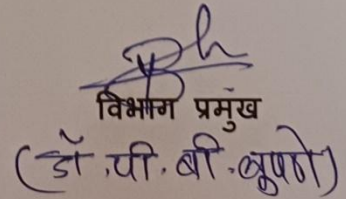 विभाग प्रमुख
(डॉ. पी. बी. लुपणे)